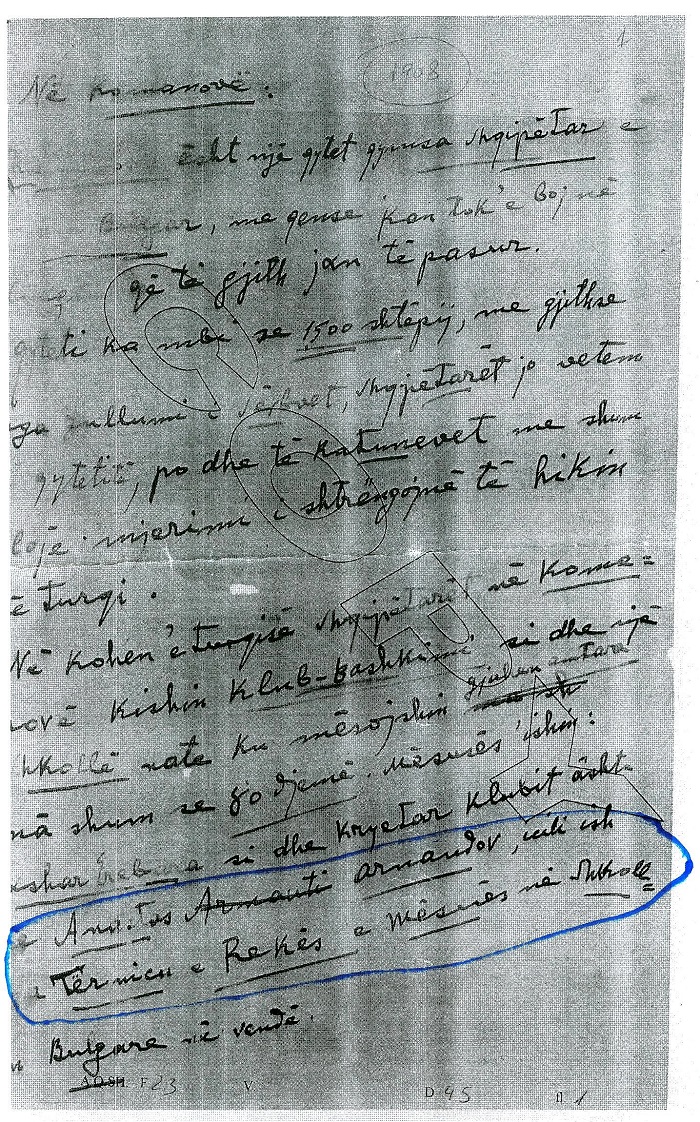 1
1908
Në Komanovë.
Ësht një qytet gjymsa shqipëtar e
Bulgar, me qense kan tok'e boj në
që të gjith jan të pasur.
qyteti ka mbi se 1500 shtëpij, me gjithse
nga zullumi i sërbvet, shqipëtarët jo vetem
qytetitë, po dhe të katunevet me shum
lojë mjerimi i shtrëngojnë të hikin
ë turqi.
Në kohen'e turqisë shqipëtarët në Koma=
novë kishin klub-bashkimi si dhe një
shkollë nate ku mësojshin gjuhen amtara
më shum se 80 djemë. Mësusës ishin:
si dhe kryetar klubit ësht
e Anastas Armauti arnaudov, cili ish
i Tërnicu e Rekës e mësusës në shkoll=
Bulgare në vendë.
AQSH. F 23 V D 45 fl 1
COPY